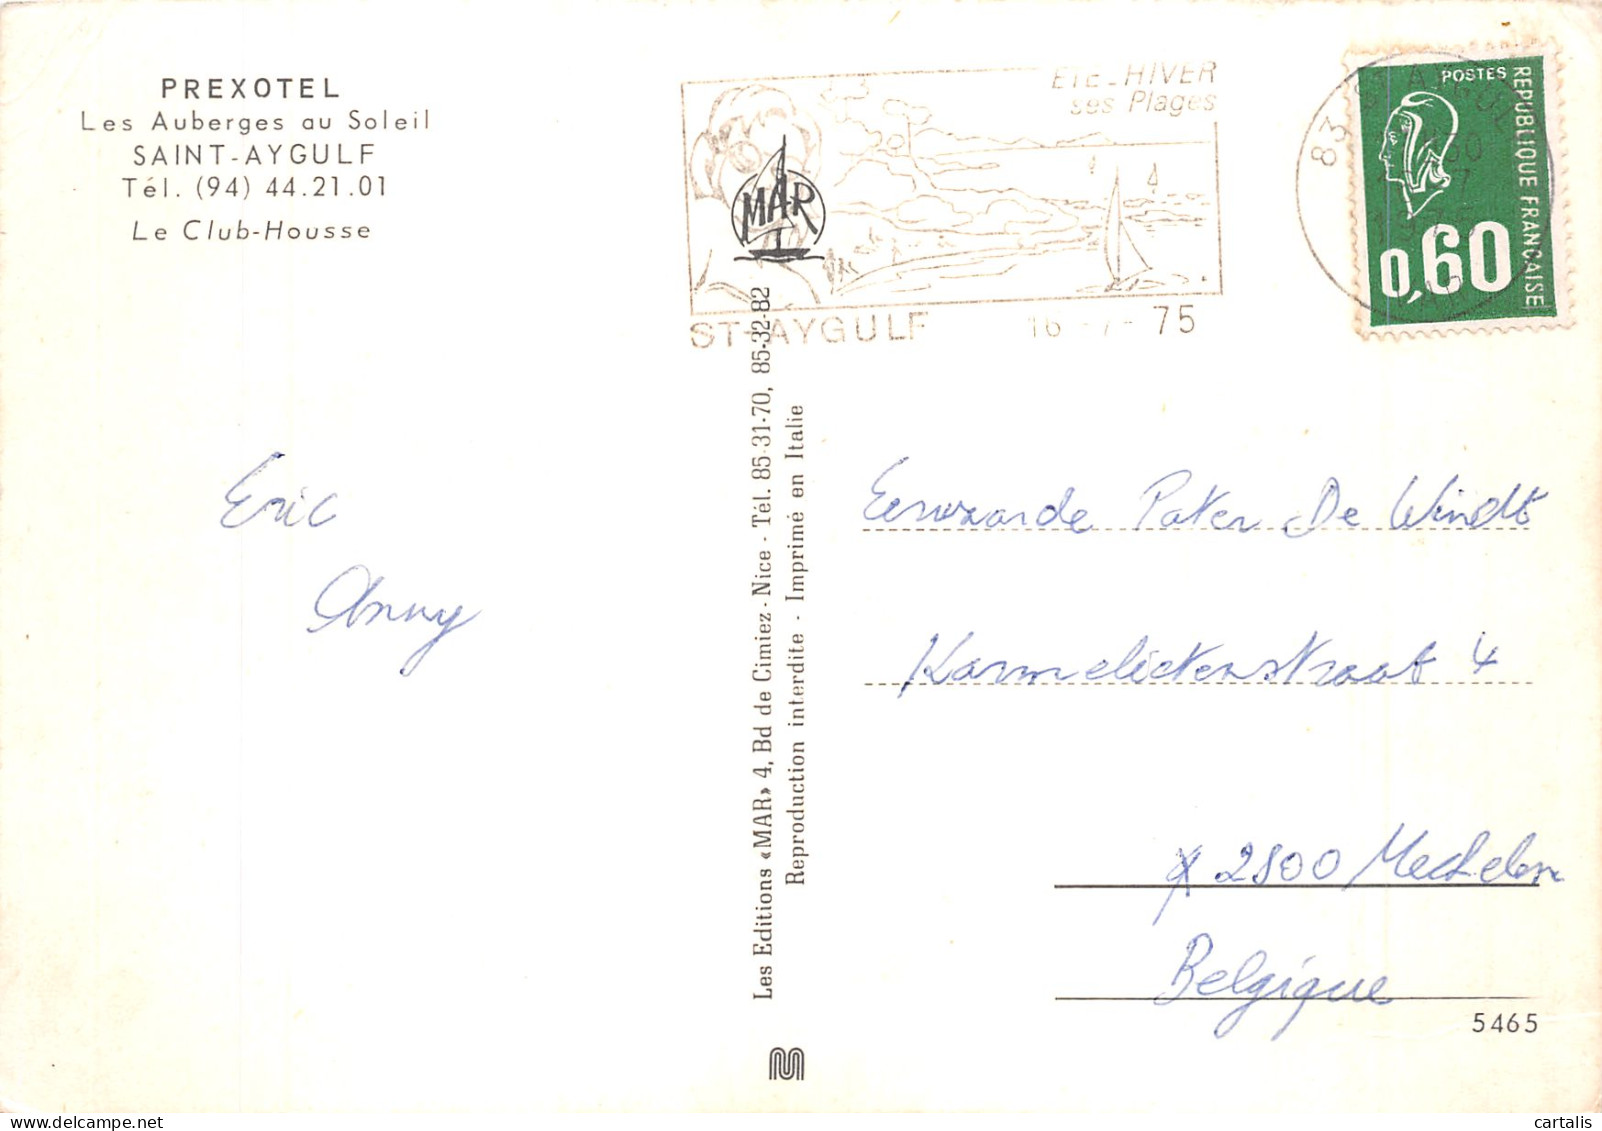 PREXOTEL
Les Auberges au Soleil
SAINT-AYGULF
Tél. (94) 44.21.01
Le Club-Housse
ETE-HIVER
ses Plages
MAR
ST-AYGULF 16-7-75
83
POSTES
REPUBLIQUE FRANCAISE
0,60
Eric
Anny
Les Editions «MAR» 4, Bd de Cimiez - Nice - Tél. 85-31-70, 85-32-82
Reproduction interdite - Imprimé en Italie
Eerwaarde Pater De Windt
Karmelietenstraat 4
2800 Mechelen
Belgique
5465
cartalis